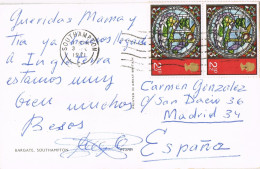 Queridas Mama y
Tia ya hemos llegado
a Inglaterra
estamos muy
bien muchos
Besos
SOUTHAMPTON
2½P
2½P
Carmen Gonzalez
c/ San
Madrid 34
España
BARGATE, SOUTHAMPTON